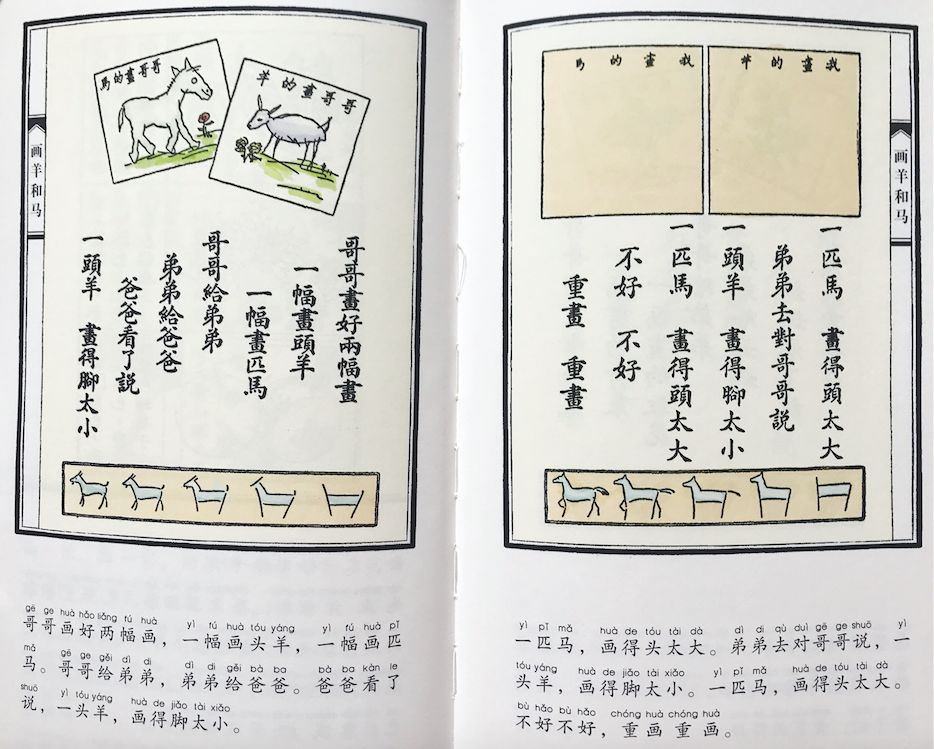 画羊和马
哥哥畫的馬
哥哥畫的羊
哥哥畫好兩幅畫
一幅畫頭羊
一幅畫匹馬
哥哥給弟弟
弟弟給爸爸
爸爸看了説
一頭羊 畫得腳太小
gē ge huà hǎo liǎng fú huà yì fú huà tóu yáng yì fú huà pǐ
哥哥画好两幅画，一幅画头羊，一幅画匹
mǎ gē ge gěi dì di dì di gěi bà ba bà ba kàn le
马。哥哥给弟弟，弟弟给爸爸。爸爸看了
shuō yì tóu yáng huà de jiǎo tài xiǎo
说，一头羊，画得脚太小。
画羊和马
我畫的羊
我畫的馬
一匹馬 畫得頭太大
弟弟去對哥哥説
一頭羊 畫得腳太小
一匹馬 畫得頭太大
不好 不好
重畫 重畫
yì pǐ mǎ huà de tóu tài dà dì di qù duì gē ge shuō yì
一匹马，画得头太大。弟弟去对哥哥说，一
tóu yáng huà de jiǎo tài xiǎo yì pǐ mǎ huà de tóu tài dà
头羊，画得脚太小。一匹马，画得头太大。
bù hǎo bù hǎo chóng huà chóng huà
不好不好，重画重画。